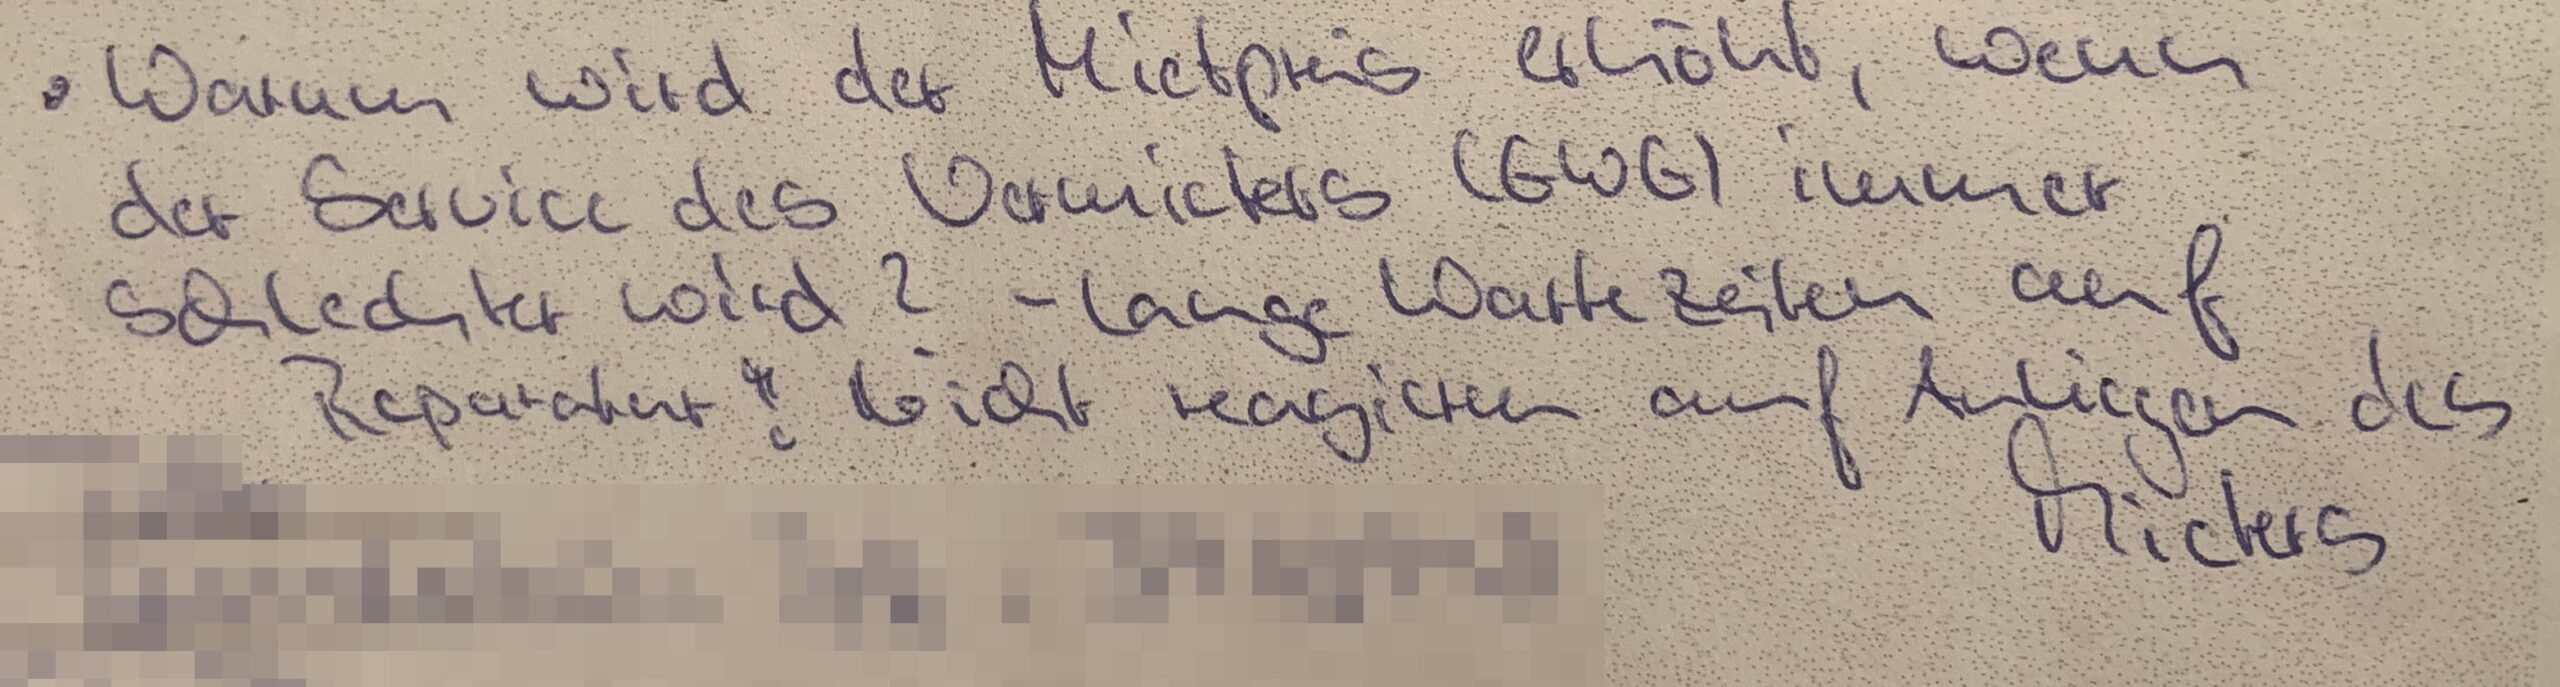 • Warum wird der Mietpreis erhöht, wenn
der Service des Vermieters (GWG) immer
schlechter wird? - lange Wartezeiten auf
Reparatur & Nicht reagieren auf Anliegen des
Mieters